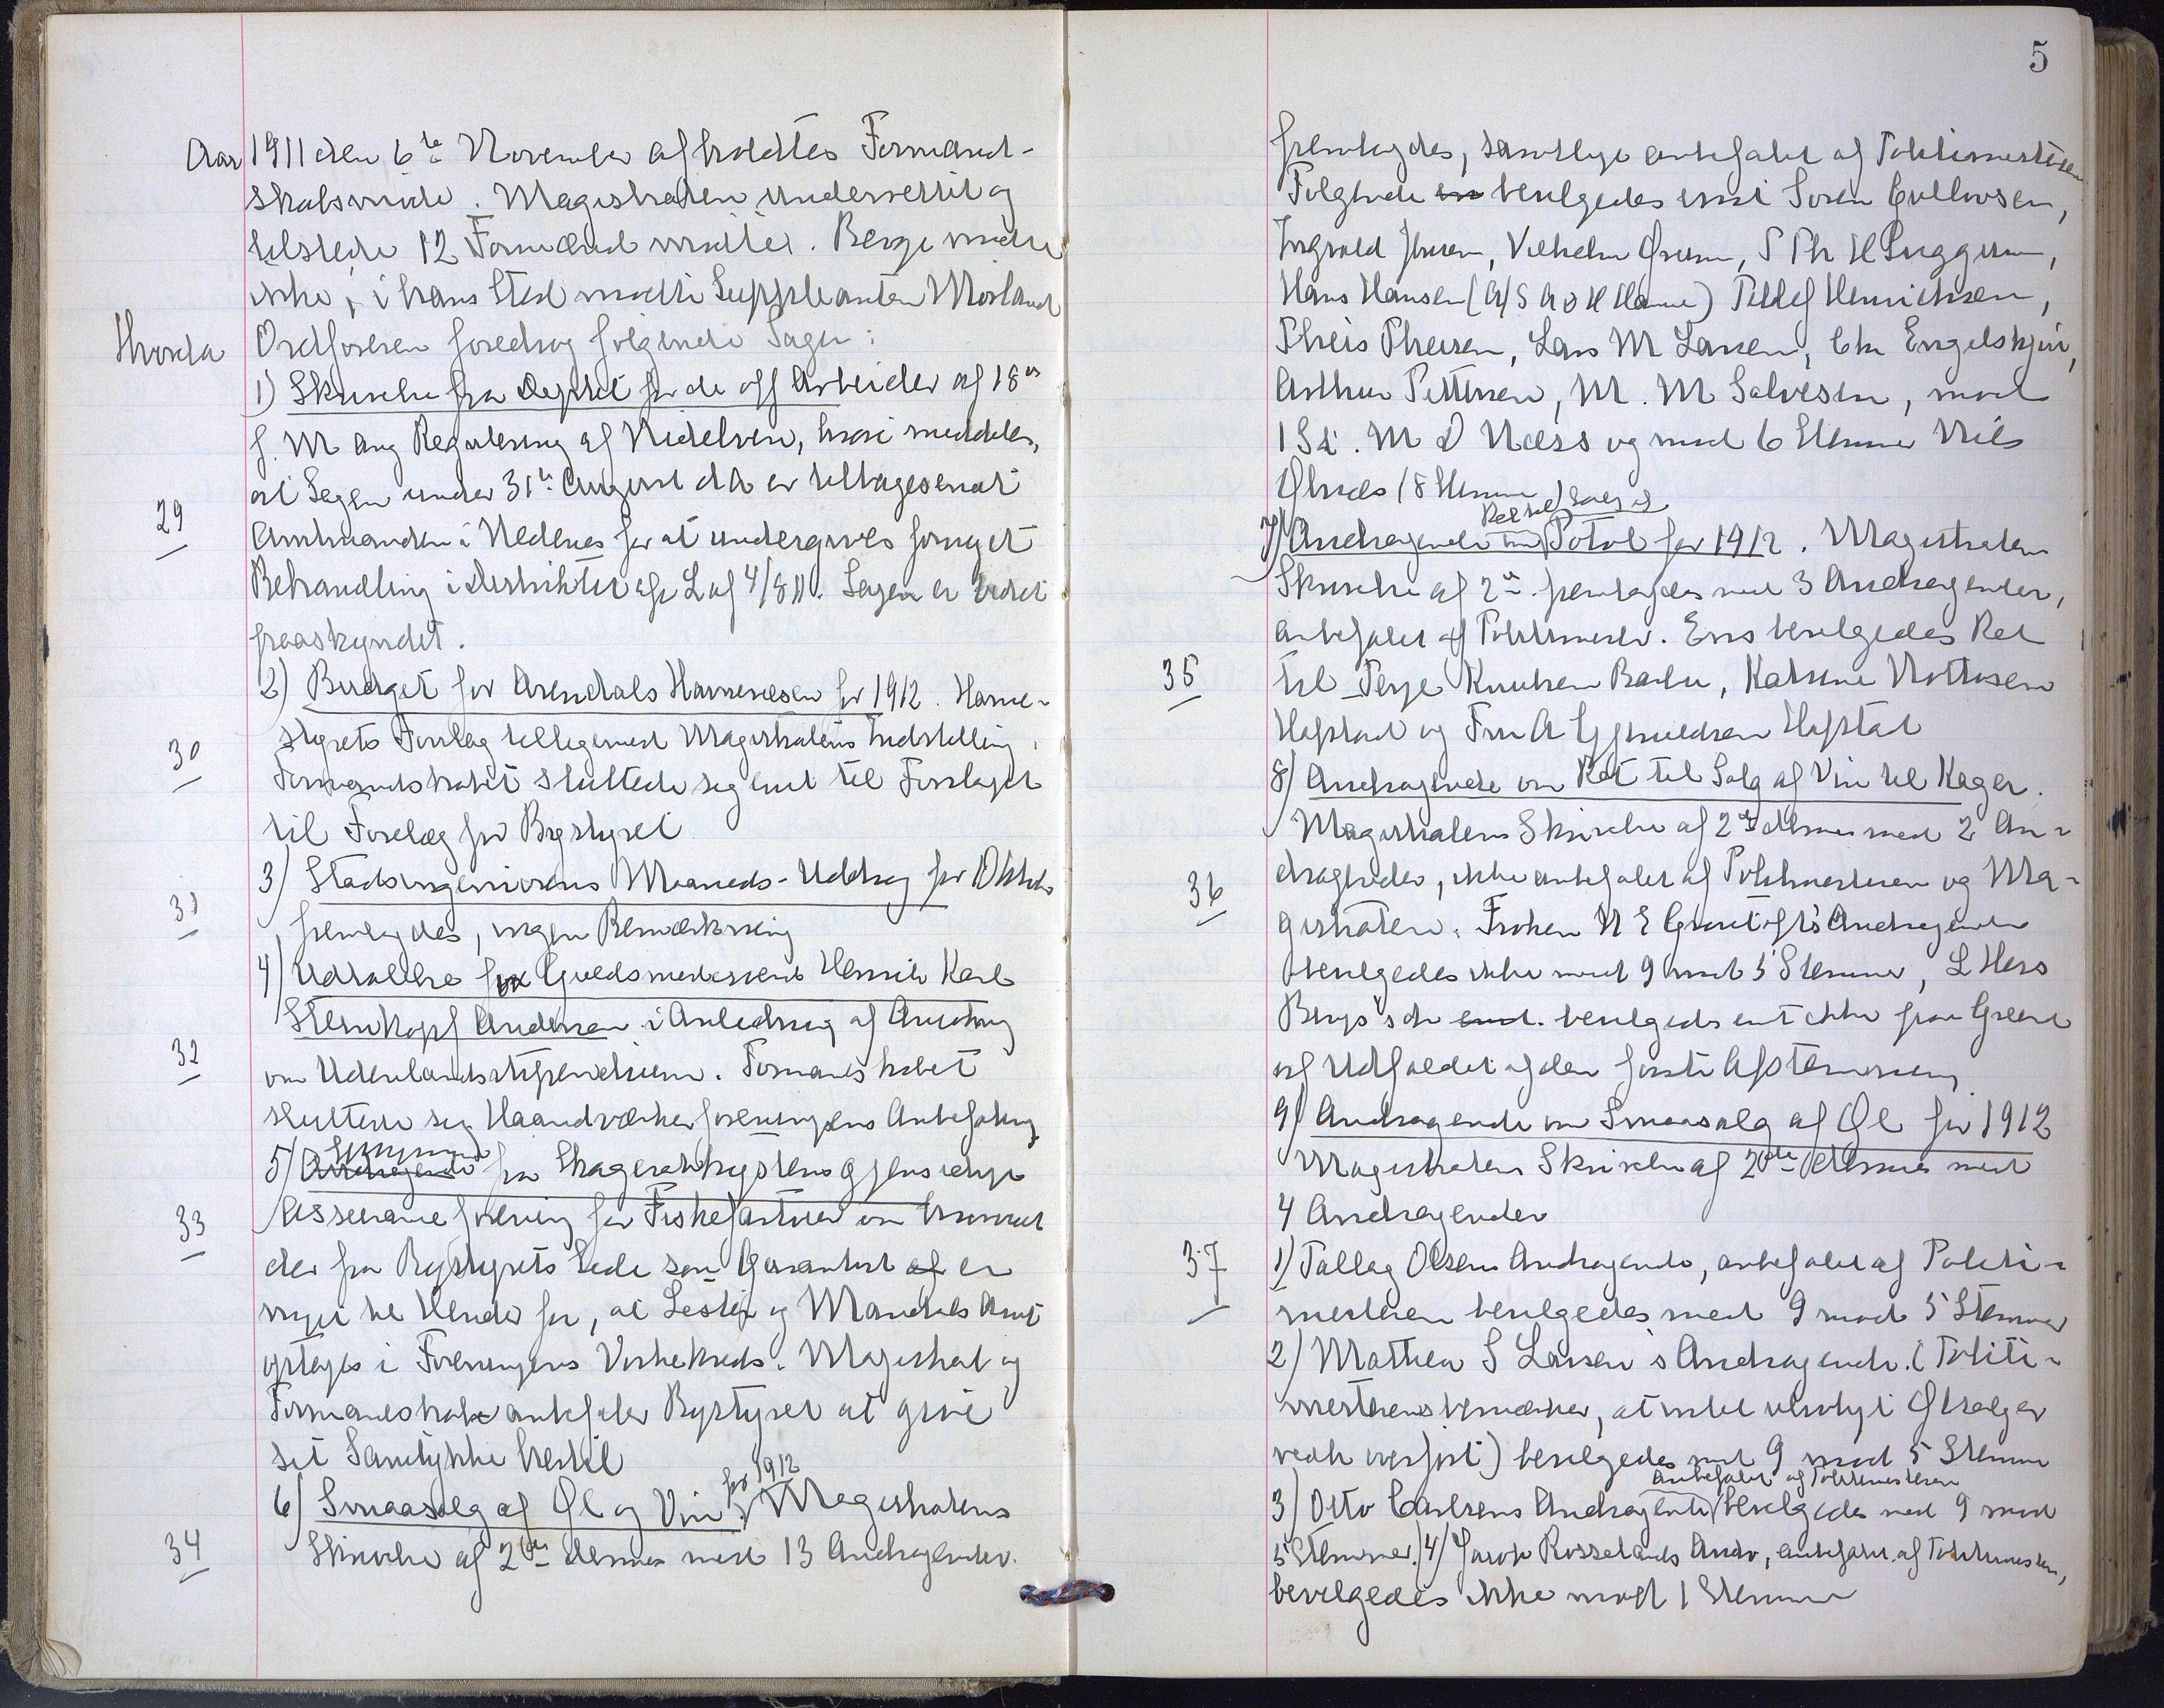 Aar 1911 den 6te November afholdtes Formand-
skabsmøde. Magistraten underrettet og
tilstede 12 Formænd mødte. Berge mødte
ikke, i hans Sted mødte Suppleanten Mørland
Hvorda Ordføreren foredrog følgende Sager:
1) Skrivelse fra Deptet for de off Arbeider af 18de
f. M ang Regulering af Nidelven, hvori meddeles,
at Sagen under 31te August d A er tilbagesendt
29
Amtmanden i Nedenes for at undergives fornyet
Behandling i Distriktet efr L af 4/8 11. Sagen er bedst
paaskyndet.
2) Budget for Arendals Havnevæsen for 1912. Havne-
styrets Forslag tilligemed Magistratens Indstilling.
30
Formandskabet sluttede sig enst til Forslaget
til Forelæg for Bystyret
3) Stadsingeniørens Maaneds-Uddrag for Oktober
31
fremlagdes, ingen Bemærkning
4) Udtalelse for Guldsmedsvend Henrik Karl
Steinkopf Andersen i Anledning af Ansøgning
32
om Udenlandsstipendium. Formandskabet
sluttede sig Haandværkerforeningens Anbefaling
5) Andragende fra Skagerakkystens gjensidige
33
Assuranceforening for Fiskefartøier om hvorvidt
der fra Bystyrets Side som Garantist af er
noget til Hinder for, at Lister og Mandals Amt
optages i Foreningens Virkekreds. Magistrat og
Formandskab anbefaler Bystyret at give
sit Samtykke hertil
6) Smaasalg af Øl og Vin for 1912. Magistratens
34
Skrivelse af 2den dennes med 13 Andragender
5
fremlagdes, samtlige anbefalet af Politimesteren
Følgende en bevilgedes enst Søren Gullovsen,
Ingvald Jensen, Vilhelm, S Th H Suggerun,
Hans Hansen (A/S A O H Hanne) Detlef Henrichsen,
Theis Theisen, Lars M Larsen, Chr Engelskjøn,
Arthur Pettersen, M. M Salvesen, mod
1 St. M D Næss og mod 6 Stemmer Nils
Ølnæs (8 Stemmer)
7) Andragende om Ret til Salg af Potøl for 1912. Magistratens
Skrivelse af 2de fremlagdes med 3 Andragender,
anbefalet af Politimester. Enst bevilgedes Ret
35
til Terje Knutsen Barbu, Katrine Nottosen
Hofstad og Fru A Gjmuldsen Hofstat
8) Andragende om Ret til Salg af Vin til Kager.
Magistratens Skrivelse af 2de dennes med 2 An-
36
dragender, ikke anbefalet af Politimesteren og Ma-
gistraten. Frøken N E Andragende
bevilgedes ikke med 9 mod 5 Stemmer, L Hess
Bergs do enst. bevilgedes enst ikke paa Grund
af Udfaldet af den første Afstemning
9) Andragende om Smaasalg af Øl for 1912
Magistratens Skrivelse af 2den dennes med
4 Andragender
37
1) Tallag Olsens Andragende, anbefalet af Politi-
mesteren bevilgedes med 9 mod 5 Stemmer
2) Mathea S Larsen's Andragende. (Politi-
mesterens bemærker, at intet ulovligt Ølsalg er
vedk overført) bevilgedes med 9 mod 5 Stemmer
3) Otto Carlsens Andragende, anbefalet af Politimesteren bevilgedes med 9 mod
5 Stemmer. 4) Jacob Rosselands Andr, anbefalet af Politimesteren,
bevilgedes ikke mod 1 Stemme